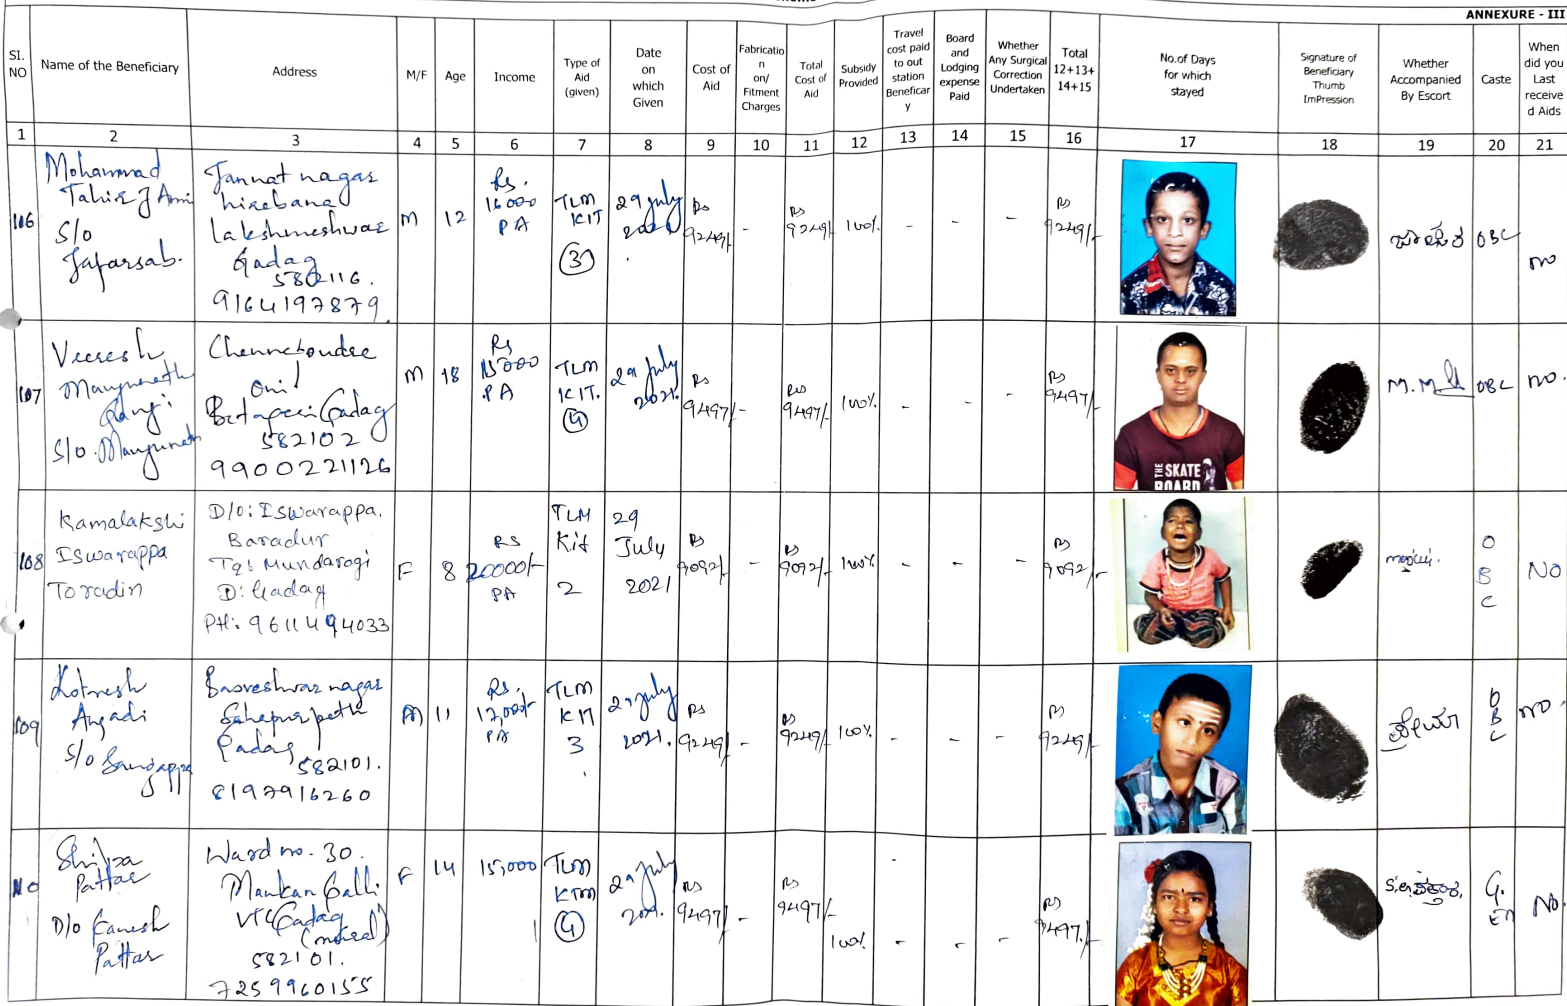 ANNEXURE - III
SI. NO
Name of the Beneficiary
Address
M/F
Age
Income
Type of Aid (given)
Date on which Given
Cost of Aid
Fabricatio n on/ Fitment Charges
Total Cost of Aid
Subsidy Provided
Travel cost paid to out station Beneficar y
Board and Lodging expense Paid
Whether Any Surgical Correction Undertaken
Total 12+13+ 14+15
No.of Days for which stayed
Signature of Beneficiary Thumb ImPression
Whether Accompanied By Escort
Caste
When did you Last receive d Aids
1 2 3 4 5 6 7 8 9 10 11 12 13 14 15 16 17 18 19 20 21
106
Mohammad
Tahir J
S/o
Jafarsab.
Jannat nagar
hirebana
lakshmeshwar
Gadag
582116.
9164197879
M
12
Rs.
16000
PA
TLM
KIT
3
29 July
2021
Rs
9249/-
-
Rs
9249/-
100%
-
-
-
Rs
9249/-
OBC
no
107
Veeresh
Manjunath
S/o. Manjunath
Oni
Betageri Gadag
582102
9900221126
M
18
Rs
15000
PA
TLM
KIT.
4
29 July
2021.
Rs
9497/-
-
Rs
9497/-
100%
-
-
-
Rs
9497/-
THE SKATE
BOARD
M.M
OBC
no.
108
Kamalakshi
Iswarappa
Toradin
D/o: Iswarappa.
Baradur
Tq: Mundaragi
D: Gadag
PH: 9611494033
F
8
RS
20000/-
PA
TLM
Kit
2
29
July
2021
Rs
9092/-
-
Rs
9092/-
100%
-
-
-
Rs
9092/-
O
B
C
NO
109
Kotresh
Angadi
S/o
Basveshwar nagar
Sahapurpeth
Gadag
582101.
8197916260
M
11
Rs.
12,000/-
PA
TLM
KIT
3
29 July
2021.
Rs
9249/-
-
Rs
9249/-
100%
-
-
-
Rs
9249/-
O
B
C
NO.
110
Shilpa
Pattar
D/o Ganesh
Pattar
Ward no. 30.
Mankan Galli
VTC Gadag
582101.
7259960155
F
14
15,000
TLM
4
29 July
2021.
Rs
9497/-
-
Rs
9497/-
100%
-
-
-
Rs
9497/-
ಪತ್ತಾರ
G.
En
No.